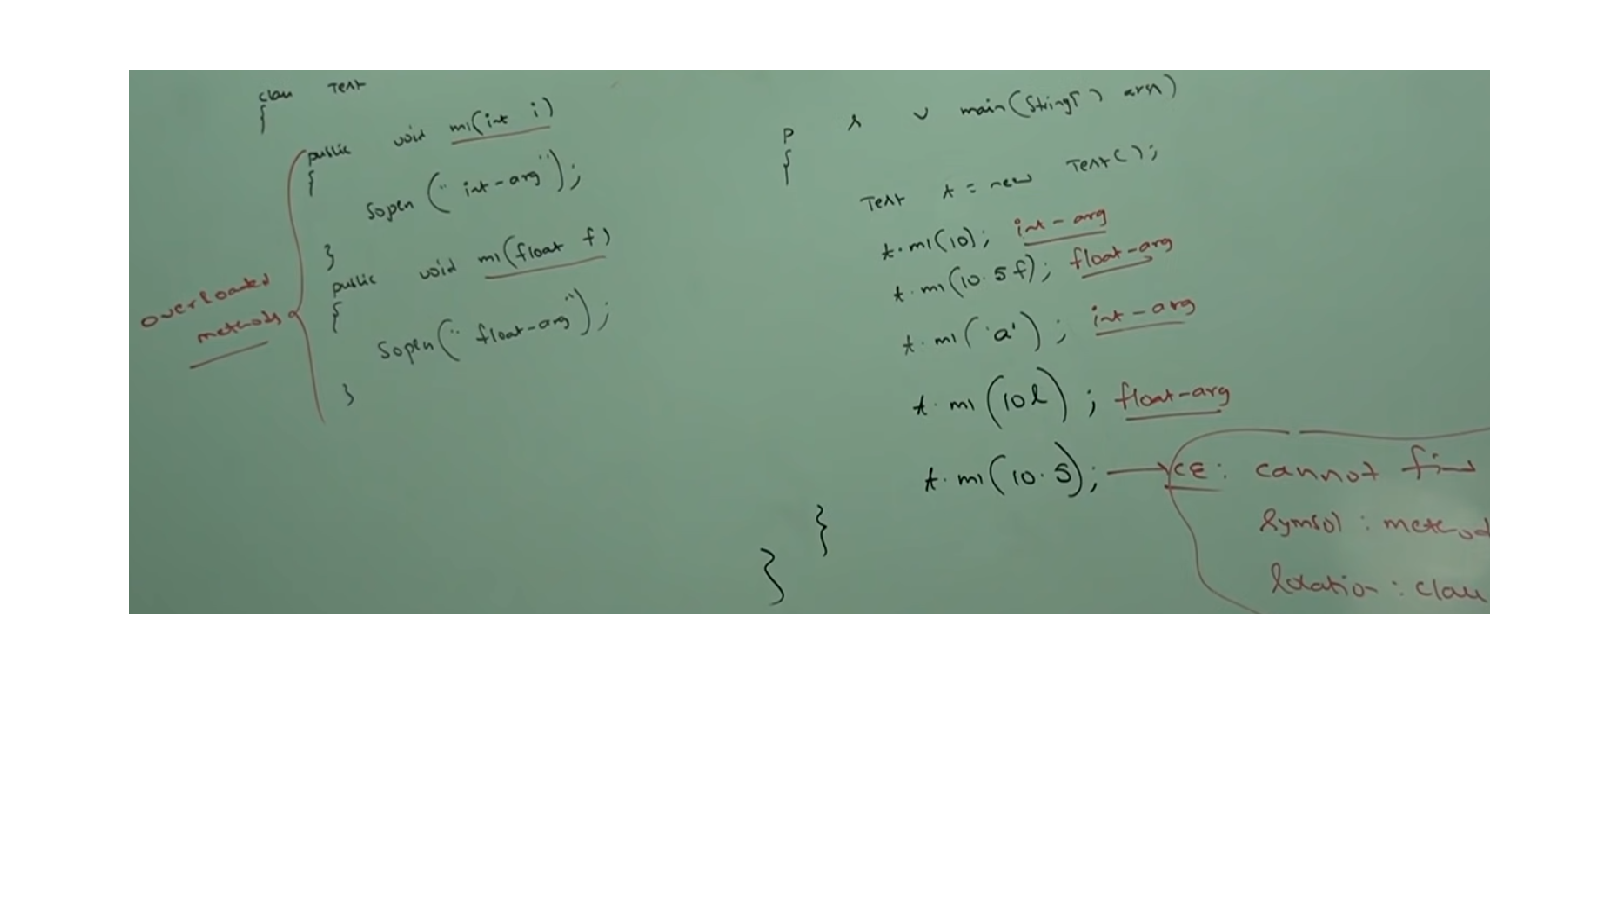 class Test
{
public void m1(int i)
{
Sopln("int-arg");
}
public void m1(float f)
{
Sopln("float-arg");
}
overloaded
methods
P s v main(String[] args)
{
Test t = new Test();
t.m1(10); int-arg
t.m1(10.5f); float-arg
t.m1('a'); int-arg
t.m1(10l); float-arg
t.m1(10.5); CE: cannot find
symbol: method
location: class
}
}